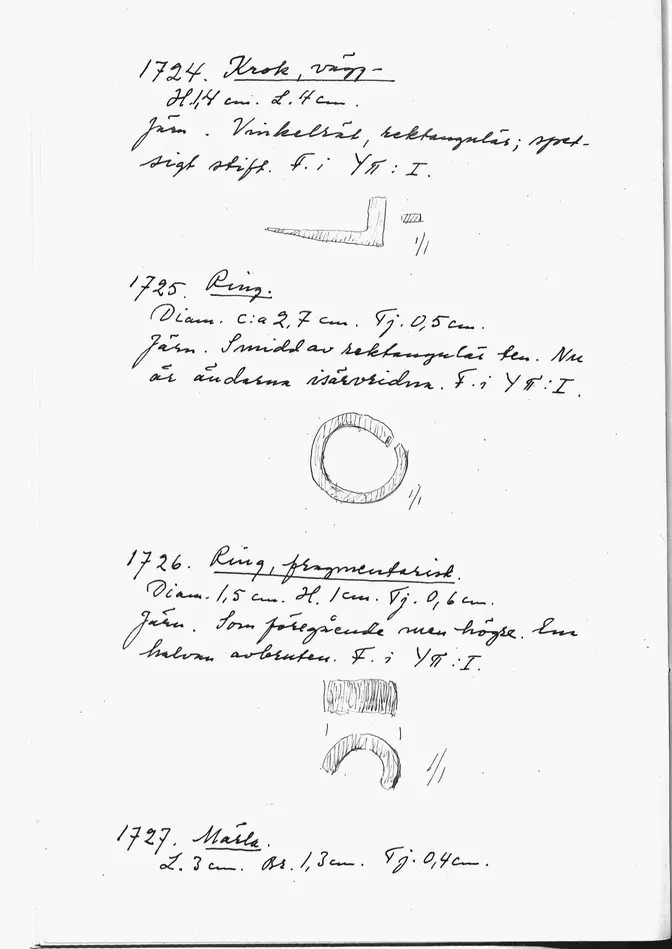 1724. Krok, vägg-
H. 1,4 cm. L. 4 cm.
Järn. Vinkelrät, rektangulär; spet-
sigt stift. F. i YΠ: I.
1/1
1725. Ring.
Diam. c:a 2,7 cm. Tj. 0,5 cm.
Järn. Smidd av rektangulär ten. Nu
är ändarna isärvridna. F. i YΠ: I.
1/1
1726. Ring, fragmentarisk.
Diam. 1,5 cm. H. 1 cm. Tj. 0,6 cm.
Järn. Som föregående men högre. Ena
halvan avbruten. F. i YΠ: I.
1/1
1727. Märla.
L. 3 cm. Br. 1,3 cm. Tj. 0,4 cm.